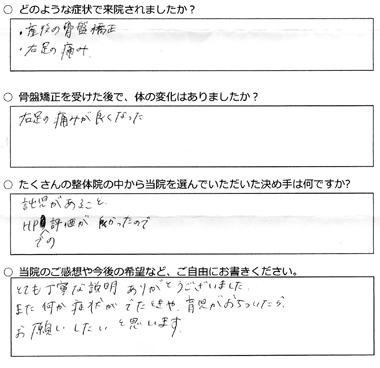 ○ どのような症状で来院されましたか？
・産後の骨盤矯正
・右足の痛み
○ 骨盤矯正を受けた後で、体の変化はありましたか？
右足の痛みが良くなった
○ たくさんの整体院の中から当院を選んでいただいた決め手は何ですか?
託児があること
HP 評価が良かったので
その
○ 当院のご感想や今後の希望など、ご自由にお書きください。
とても丁寧な説明ありがとうございました。
また何か症状がでたときや、育児がおちついたら
お願いしたいと思います。